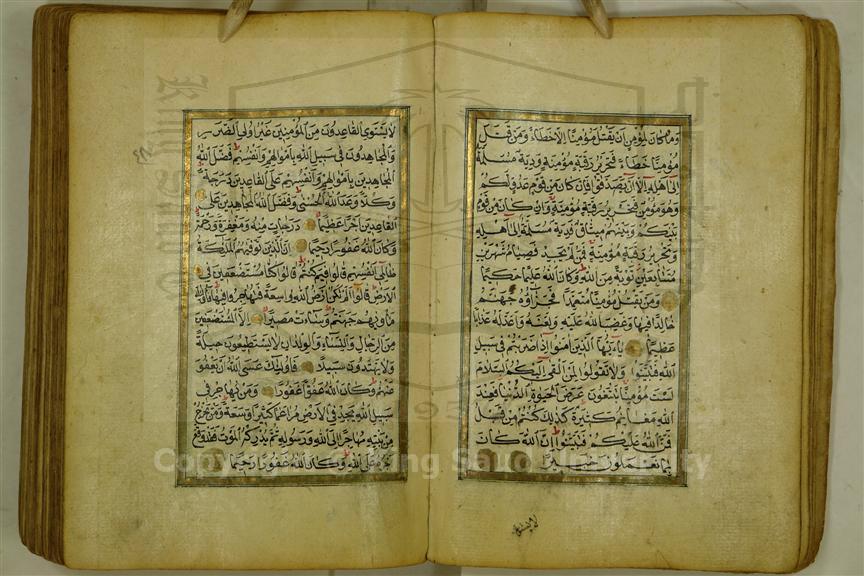 وَمَا كَانَ لِمُؤْمِنٍ أَنْ يَقْتُلَ مُؤْمِنًا إِلَّا خَطَاءً وَمَنْ قَتَلَ
مُؤْمِنًا خَطَاءً فَتَحْرِيرُ رَقَبَةٍ مُؤْمِنَةٍ وَدِيَةٌ مُسَلَّمَةٌ
إِلَى أَهْلِهِ إِلَّا أَنْ يَصَّدَّقُوا فَإِنْ كَانَ مِنْ قَوْمٍ عَدُوٍّ لَكُمْ
وَهُوَ مُؤْمِنٌ فَتَحْرِيرُ رَقَبَةٍ مُؤْمِنَةٍ وَإِنْ كَانَ مِنْ قَوْمٍ
بَيْنَكُمْ وَبَيْنَهُمْ مِيثَاقٌ فَدِيَةٌ مُسَلَّمَةٌ إِلَى أَهْلِهِ
وَتَحْرِيرُ رَقَبَةٍ مُؤْمِنَةٍ فَمَنْ لَمْ يَجِدْ فَصِيَامُ شَهْرَيْنِ
مُتَتَابِعَيْنِ تَوْبَةً مِنَ اللَّهِ وَكَانَ اللَّهُ عَلِيمًا حَكِيمًا
وَمَنْ يَقْتُلْ مُؤْمِنًا مُتَعَمِّدًا فَجَزَاؤُهُ جَهَنَّمُ
خَالِدًا فِيهَا وَغَضِبَ اللَّهُ عَلَيْهِ وَلَعَنَهُ وَأَعَدَّ لَهُ عَذَابًا
عَظِيمًا يَاءَيُّهَا الَّذِينَ آمَنُوا إِذَا ضَرَبْتُمْ فِي سَبِيلِ
اللَّهِ فَتَبَيَّنُوا وَلَا تَقُولُوا لِمَنْ أَلْقَى إِلَيْكُمُ السَّلَامَ
لَسْتَ مُؤْمِنًا تَبْتَغُونَ عَرَضَ الْحَيَوةِ الدُّنْيَا فَعِنْدَ
اللَّهِ مَغَانِمُ كَثِيرَةٌ كَذَلِكَ كُنْتُمْ مِنْ قَبْلُ
فَمَنَّ اللَّهُ عَلَيْكُمْ فَتَبَيَّنُوا إِنَّ اللَّهَ كَانَ
بِمَا تَعْمَلُونَ خَبِيرًا
لا يستوي
لَا يَسْتَوِي الْقَاعِدُونَ مِنَ الْمُؤْمِنِينَ غَيْرُ أُولِي الضَّرَرِ
وَالْمُجَاهِدُونَ فِي سَبِيلِ اللَّهِ بِأَمْوَالِهِمْ وَأَنْفُسِهِمْ فَضَّلَ اللَّهُ
الْمُجَاهِدِينَ بِأَمْوَالِهِمْ وَأَنْفُسِهِمْ عَلَى الْقَاعِدِينَ دَرَجَةً
وَكُلًّا وَعَدَ اللَّهُ الْحُسْنَى وَفَضَّلَ اللَّهُ الْمُجَاهِدِينَ عَلَى
الْقَاعِدِينَ أَجْرًا عَظِيمًا دَرَجَاتٍ مِنْهُ وَمَغْفِرَةً وَرَحْمَةً
وَكَانَ اللَّهُ غَفُورًا رَحِيمًا إِنَّ الَّذِينَ تَوَفَّيهُمُ الْمَلَئِكَةُ
ظَالِمِي أَنْفُسِهِمْ قَالُوا فِيمَ كُنْتُمْ قَالُوا كُنَّا مُسْتَضْعَفِينَ فِي
الْأَرْضِ قَالُوا أَلَمْ تَكُنْ أَرْضُ اللَّهِ وَاسِعَةً فَتُهَاجِرُوا فِيهَا فَأُولَئِكَ
مَأْوَيهُمْ جَهَنَّمُ وَسَاءَتْ مَصِيرًا إِلَّا الْمُسْتَضْعَفِينَ
مِنَ الرِّجَالِ وَالنِّسَاءِ وَالْوِلْدَانِ لَا يَسْتَطِيعُونَ حِيلَةً
وَلَا يَهْتَدُونَ سَبِيلًا فَأُولَئِكَ عَسَى اللَّهُ أَنْ يَعْفُوَ
عَنْهُمْ وَكَانَ اللَّهُ عَفُوًّا غَفُورًا وَمَنْ يُهَاجِرْ فِي
سَبِيلِ اللَّهِ يَجِدْ فِي الْأَرْضِ مُرَاغَمًا كَثِيرًا وَسَعَةً وَمَنْ يَخْرُجْ
مِنْ بَيْتِهِ مُهَاجِرًا إِلَى اللَّهِ وَرَسُولِهِ ثُمَّ يُدْرِكْهُ الْمَوْتُ فَقَدْ وَقَعَ
أَجْرُهُ عَلَى اللَّهِ وَكَانَ اللَّهُ غَفُورًا رَحِيمًا
Copyright © King Saud University